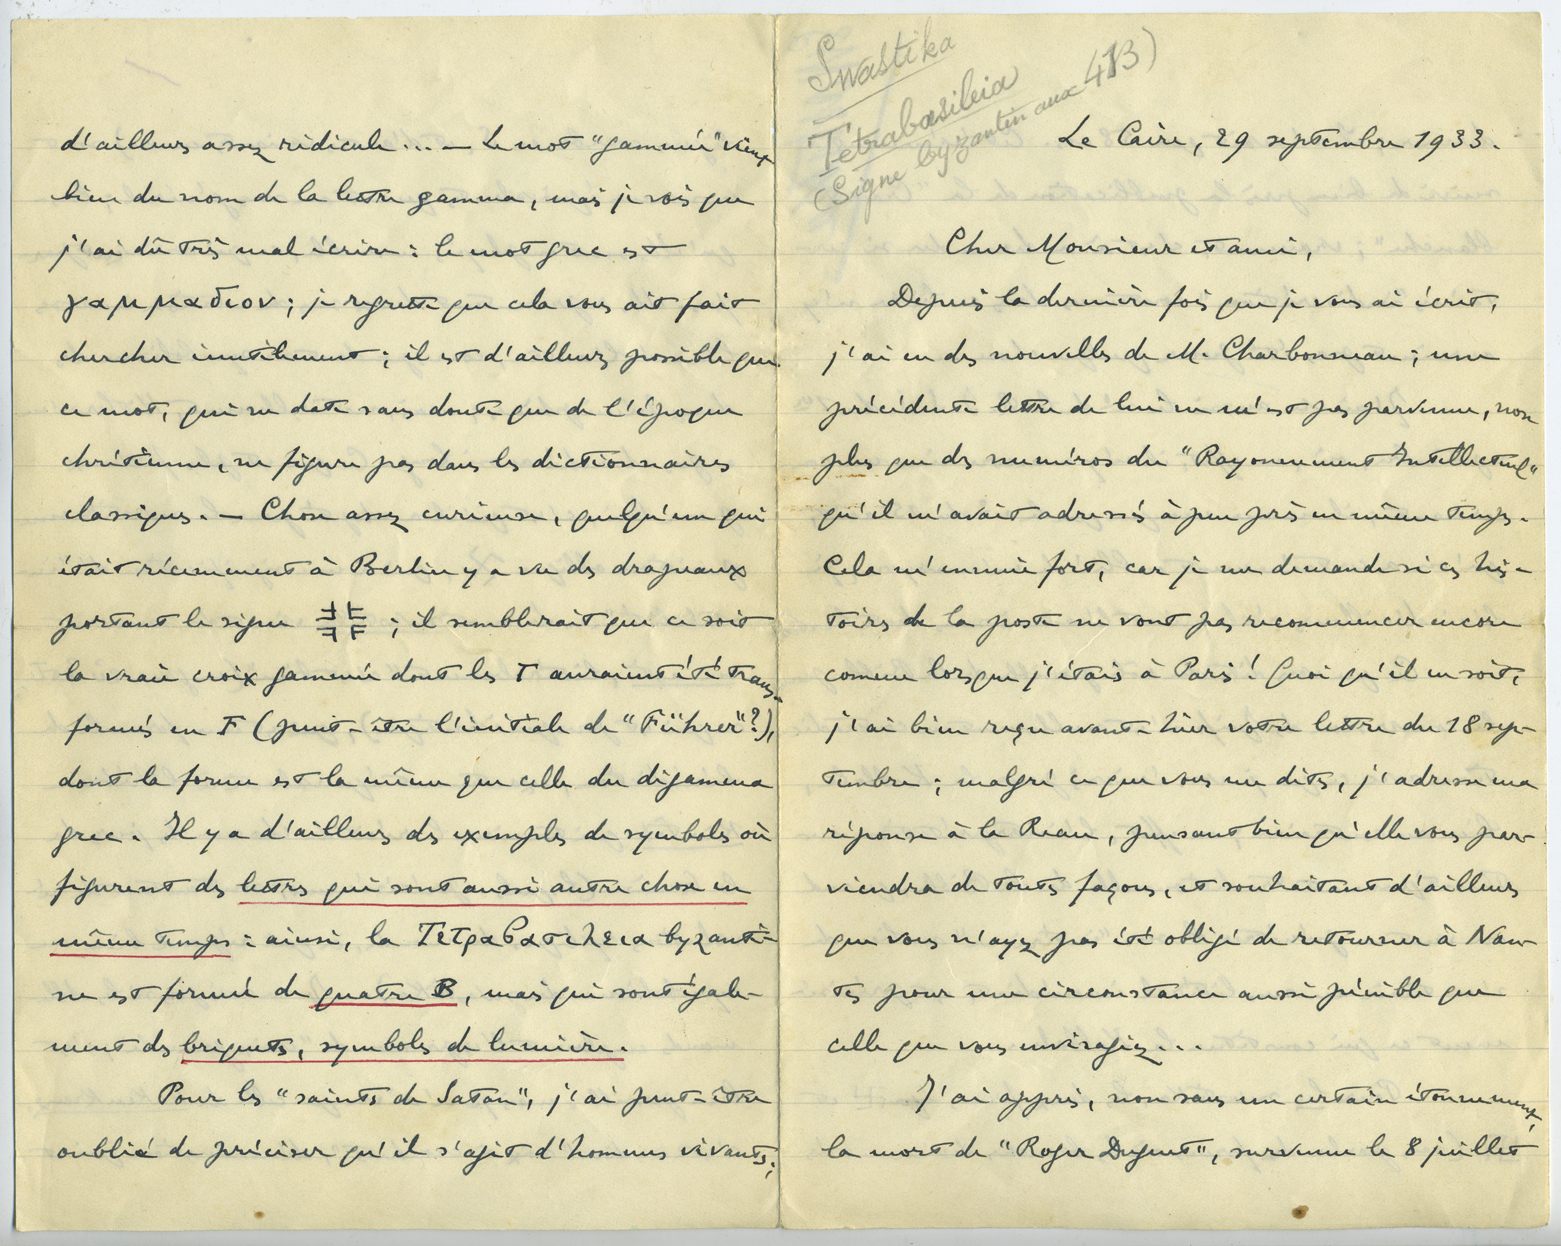 d'ailleurs assez ridicule... — Le mot "gammée" vient
bien du nom de la lettre gamma, mais je vois que
j'ai dû très mal écrire : le mot grec est
γαμμαδιον ; je regrette que cela vous ait fait
chercher inutilement ; il est d'ailleurs possible que
ce mot, qui ne date sans doute que de l'époque
chrétienne, ne figure pas dans les dictionnaires
classiques. — Chose assez curieuse, quelqu'un qui
était récemment à Berlin y a vu des drapeaux
portant le signe ; il semblerait que ce soit
la vraie croix gammée dont les Γ auraient été trans-
formés en F (peut-être l'initiale de "Führer"?),
dont la forme est la même que celle du digamma
grec. Il y a d'ailleurs des exemples de symboles où
figurent des lettres qui sont aussi autre chose en
même temps : ainsi, la Τετραβασιλεια byzanti-
ne est formée de quatre B, mais qui sont égale-
ment des briquets, symboles de lumière.
Pour les "saints de Satan", j'ai peut-être
oublié de préciser qu'il s'agit d'hommes vivants ;
Swastika
Tétrabasileia
(Signe byzantin aux 4 B)
Le Caire, 29 septembre 1933.
Cher Monsieur et ami,
Depuis la dernière fois que je vous ai écrit,
j'ai eu des nouvelles de M. Charbonneau ; une
précédente lettre de lui ne m'est pas parvenue, non
plus que des numéros du "Rayonnement Intellectuel"
qu'il m'avait adressés à peu près en même temps.
Cela m'ennuie fort, car je me demande si ces his-
toires de la poste ne vont pas recommencer encore
comme lorsque j'étais à Paris ! Quoi qu'il en soit,
j'ai bien reçu avant-hier votre lettre du 18 sep-
tembre ; malgré ce que vous me dites, j'adresse ma
réponse à la Reau, pensant bien qu'elle vous par-
viendra de toutes façons, et souhaitant d'ailleurs
que vous n'ayez pas été obligé de retourner à Nan-
tes pour une circonstance aussi pénible que
celle que vous envisagiez...
J'ai appris, non sans un certain étonnement,
la mort de "Roger Duguet", survenue le 8 juillet